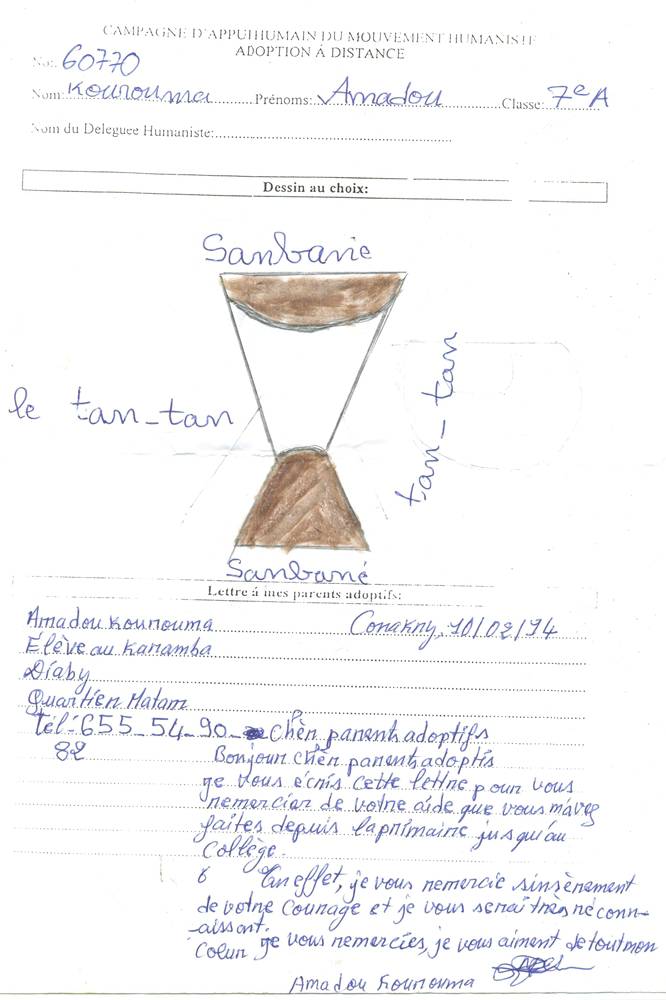 CAMPAGNE D'APPUI HUMAIN DU MOUVEMENT HUMANISTE
ADOPTION À DISTANCE
No: 60770
Nom: Kourouma Prénoms: Amadou Classe: 7e A
Nom du Deleguee Humaniste:
Dessin au choix:
Sanbanie
le tan-tan
tan-tan
Sanbané
Lettre á mes parents adoptifs:
Amadou Kourouma Conakry, 10/02/14
Élève au Karamba
Diaby
Quartier Matam
tél: 655-54-90- Chèr parents adoptifs
82 Bonjour chèr parents adoptis
je vous écris cette lettre pour vous
remercier de votre aide que vous m'avez
faites depuis la primaire jusqu'au
Collège.
En effet, je vous remercie sinsèrement
de votre Courage et je vous serai très réconn-
aissant.
Coeur je vous remercies, je vous aiment de tout mon
Amadou Kourouma